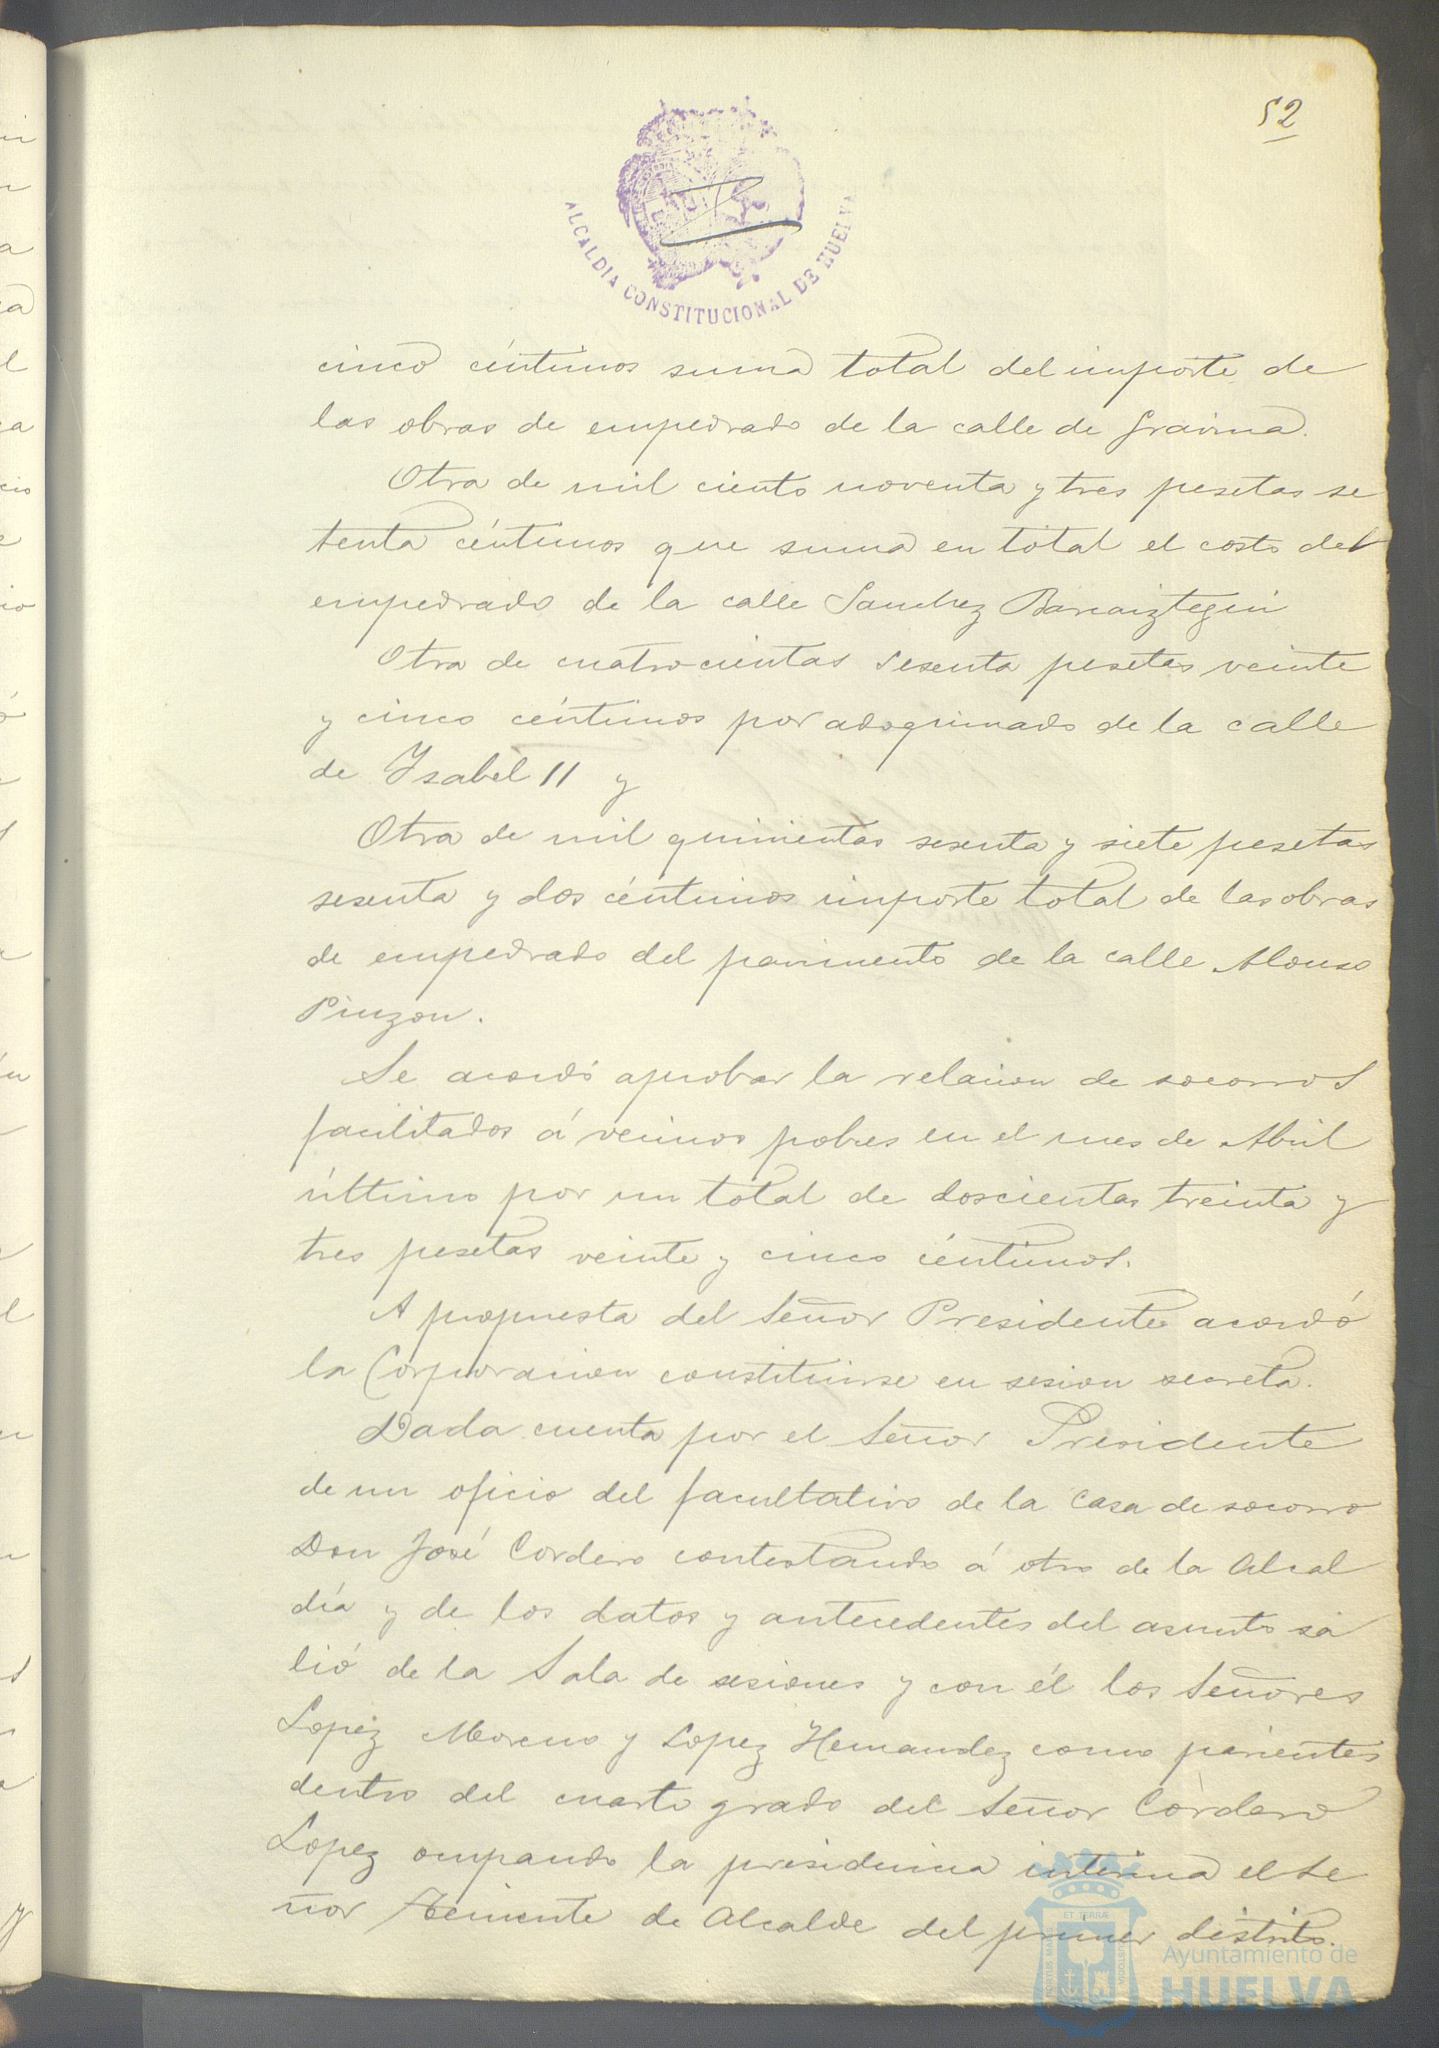 52
ALCALDIA CONSTITUCIONAL DE HUELVA
cinco céntimos suma total del importe de
las obras de empedrado de la calle de Gravina.
Otra de mil ciento noventa y tres pesetas se
tenta céntimos que suma en total el costo del
empedrado de la calle Sanchez Barcaiztegui
Otra de cuatrocientas sesenta pesetas veinte
y cinco céntimos por adoquinado de la calle
de Ysabel II y
Otra de mil quinientas sesenta y siete pesetas
sesenta y dos céntimos importe total de las obras
de empedrado del pavimento de la calle Alonso
Pinzon.
Se acordó aprobar la relacion de socorros
facilitados á vecinos pobres en el mes de Abril
último por un total de doscientas treinta y
tres pesetas veinte y cinco céntimos.
A propuesta del Señor Presidente acordó
la Corporacion constituirse en sesion secreta.
Dada cuenta por el Señor Presidente
de un oficio del facultativo de la Casa de socorro
Don José Cordero contestando á otro de la Alcal
día y de los datos y antecedentes del asunto sa
lió de la Sala de sesiones y con él los Señores
Lopez Moreno y Lopez Hernandez como parientes
dentro del cuarto grado del Señor Cordero
Lopez ocupando la presidencia interina el Se
ñor Teniente de Alcalde del primer distrito.
Ayuntamiento de
HUELVA